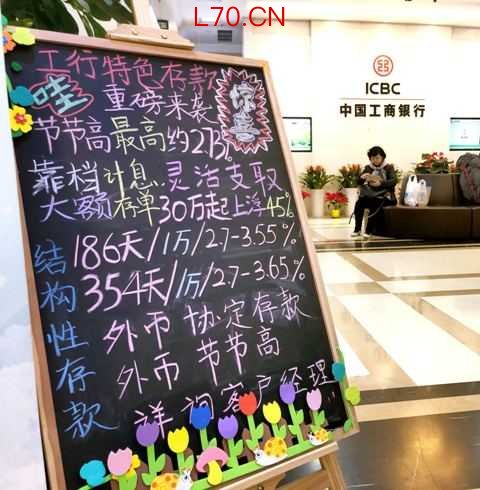 L70.CN
工行特色存款
哇 重磅来袭
惊喜
节节高最高约2.73%
靠档计息 灵活支取
大额存单30万起上浮45%
结构性存款
186天/1万/2.7-3.55%
354天/1万/2.7-3.65%
外币 协定存款
外币 节节高
详询客户经理
ICBC
中国工商银行